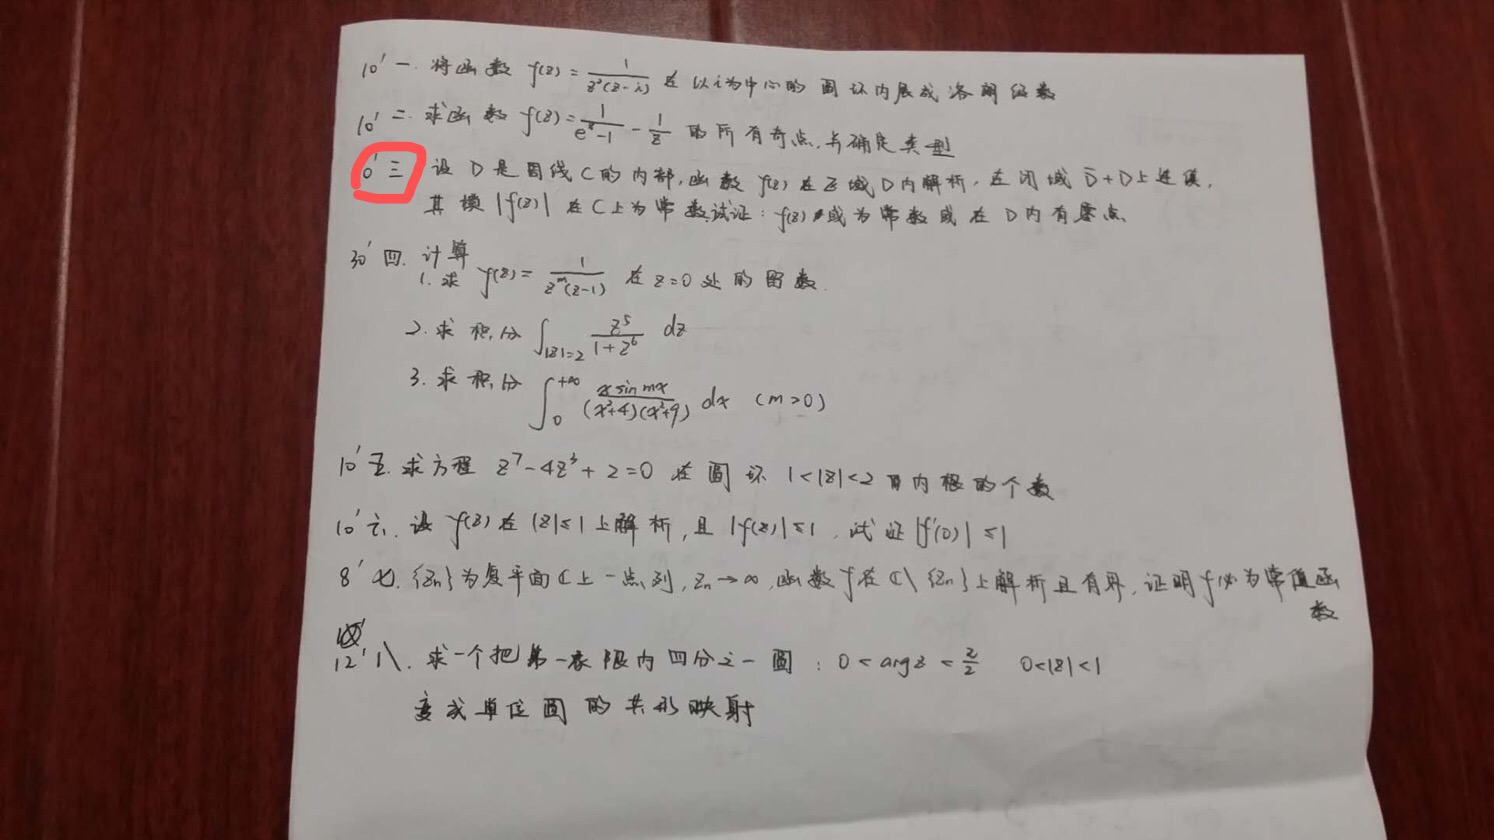 10' 一. 将函数 f(z) = 1/(z²(z-i)) 在以i为中心的圆环内展成洛朗级数
10' 二. 求函数 f(z) = 1/(e^z-1) - 1/z 的所有奇点,与确定类型
0' 三 设 D 是圆线 C 的内部,函数 f(z) 在区域 D 内解析,在闭域 D̄+D 上连续,
其模 |f(z)| 在 C 上为常数试证: f(z) 或为常数或在 D 内有零点
30' 四. 计算
1. 求 f(z) = 1/(z^m(z-1)) 在 z=0 处的留数.
2. 求积分 ∫_{|z|=2} z^5/(1+z^6) dz
3. 求积分 ∫_0^{+∞} x sin mx/((x²+4)(x²+9)) dx (m>0)
10' 五. 求方程 z^7-4z^3+2=0 在圆环 1<|z|<2 内根的个数
10' 六. 设 f(z) 在 |z|≤1 上解析,且 |f(z)|≤1, 试证 |f'(0)| ≤1
8' 七. {Zn}为复平面ℂ上一点列, Zn→∞, 函数f在ℂ\{Zn}上解析且有界, 证明f必为常值函
数
12' 八. 求一个把第一象限内四分之一圆: 0 < arg z < π/2 0<|z|<1
变成单位圆的共形映射